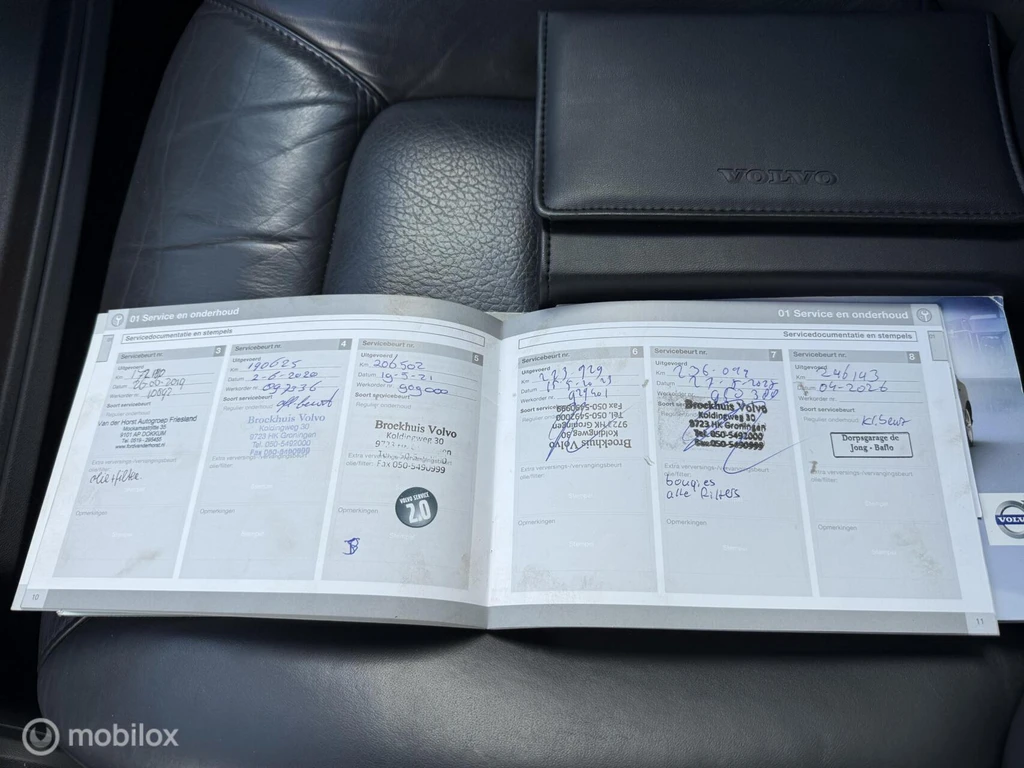 VOLVO
01 Service en onderhoud
Servicedocumentatie en stempels
Servicebeurt nr. 3
Uitgevoerd
Km
Datum
Werkorder nr.
Soort servicebeurt
Van der Horst Autogroep Friesland
9101 AP DOKKUM
Extra verversings-/vervangingsbeurt
olie/filter:
olie+filter
Opmerkingen
Servicebeurt nr. 4
Uitgevoerd
Km 190625
Datum 2-6-2020
Werkorder nr.
Soort servicebeurt
Regulier onderhoud
Broekhuis Volvo
Koldingweg 30
9723 HK Groningen
Tel. 050-5492000
Fax 050-5490999
Extra verversings-/vervangingsbeurt
olie/filter:
Opmerkingen
Stempel
Servicebeurt nr. 5
Uitgevoerd
Km 206502
Datum 19-5-21
Werkorder nr. 909000
Soort servicebeurt
Regulier onderhoud
Broekhuis Volvo
Koldingweg 30
9723 HK Groningen
Fax 050-5490999
2.0
Opmerkingen
10
01 Service en onderhoud
Servicedocumentatie en stempels
Servicebeurt nr. 6
Uitgevoerd
Km
Datum
Werkorder nr.
Soort servicebeurt
Regulier onderhoud
Broekhuis Volvo
Koldingweg 30
9723 HK Groningen
Tel. 050-5492000
Fax 050-5490999
Extra verversings-/vervangingsbeurt
olie/filter:
Opmerkingen
Stempel
Servicebeurt nr. 7
Uitgevoerd
Km
Datum
Werkorder nr.
Broekhuis Volvo
Koldingweg 30
9723 HK Groningen
Tel. 050-5492000
Fax 050-5490999
Extra verversings-/vervangingsbeurt
olie/filter:
bougies
alle filters
Opmerkingen
Stempel
Servicebeurt nr. 8
Uitgevoerd
Km 246143
Datum 04-2026
Werkorder nr.
Soort servicebeurt
Regulier onderhoud
kl. beurt
Dorpsgarage de
Jong - Baflo
Extra verversings-/vervangingsbeurt
olie/filter:
Opmerkingen
Stempel
11
VOLVO
mobilox